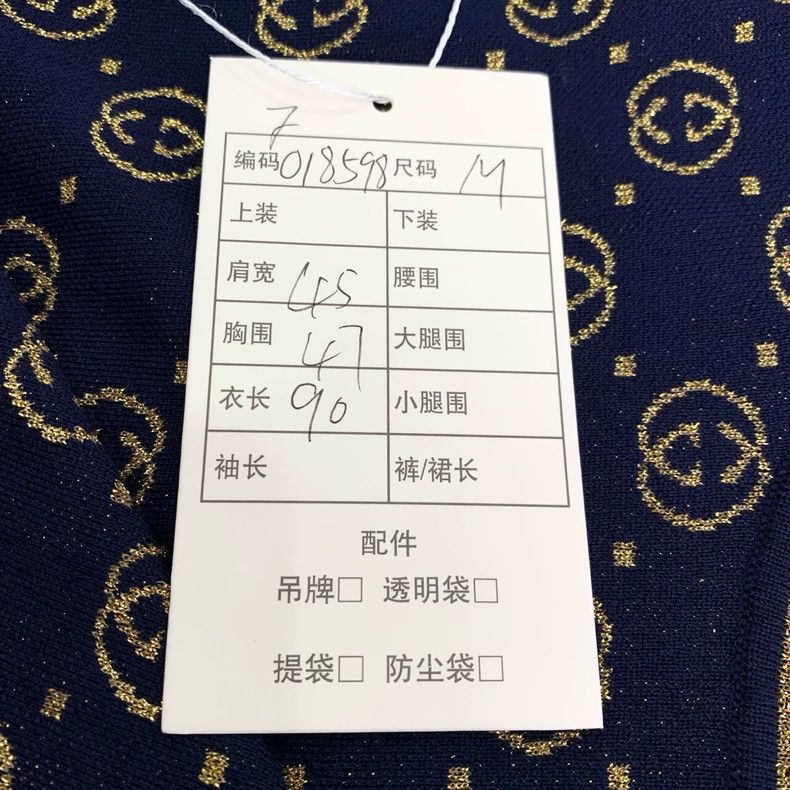 7
编码 018598 尺码 M
上装 下装
肩宽 45 腰围
胸围 47 大腿围
衣长 90 小腿围
袖长 裤/裙长
配件
吊牌□ 透明袋□
提袋□ 防尘袋□